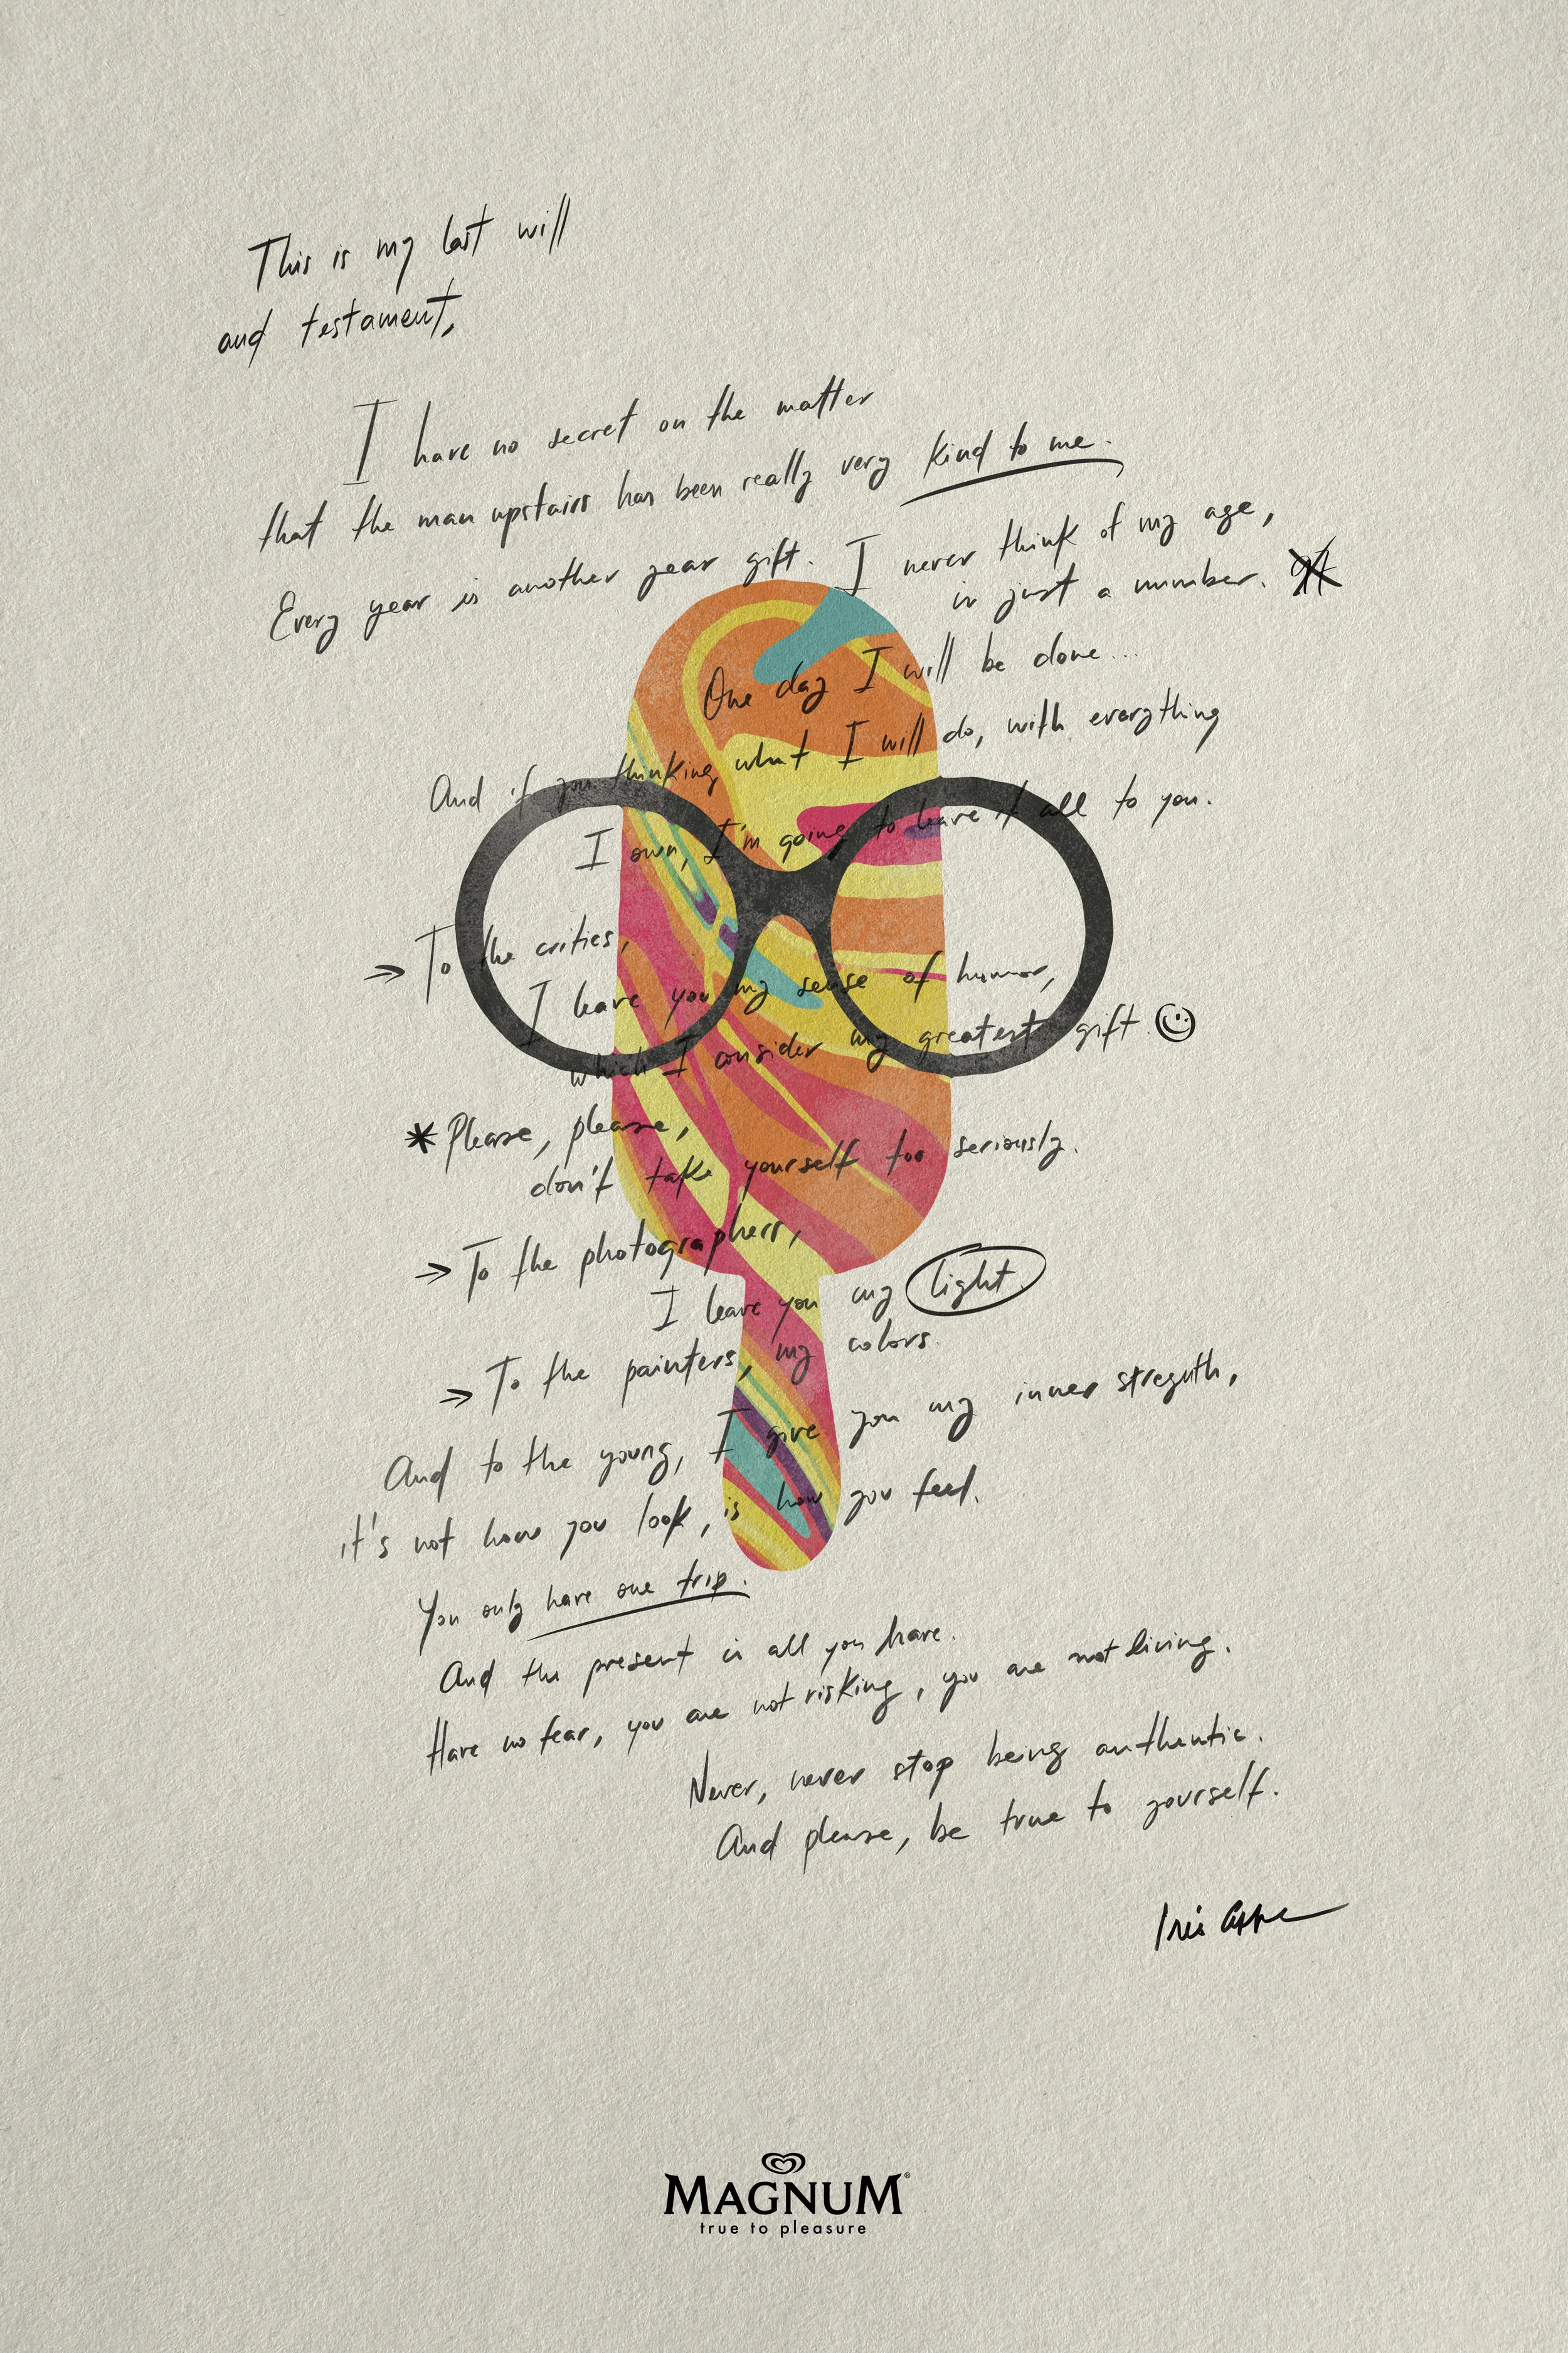 This is my last will
and testament,
I have no secret on the matter
that the man upstairs has been really very kind to me.
Every year is another year gift. I never think of my age,
is just a number.
One day I will be done...
And if you thinking what I will do, with everything
I own, I'm going to leave it all to you.
→ To the critics,
I leave you my sense of humor,
which I consider my greatest gift ☺
* Please, please,
don't take yourself too seriously.
→ To the photographers,
I leave you my light.
→ To the painters, my colors.
And to the young, I give you my inner streguth,
it's not how you look, is how you feel.
You only have one trip.
And the present is all you have.
Have no fear, you are not risking, you are not living.
Never, never stop being authentic.
And please, be true to yourself.
Iris
MAGNUM®
true to pleasure